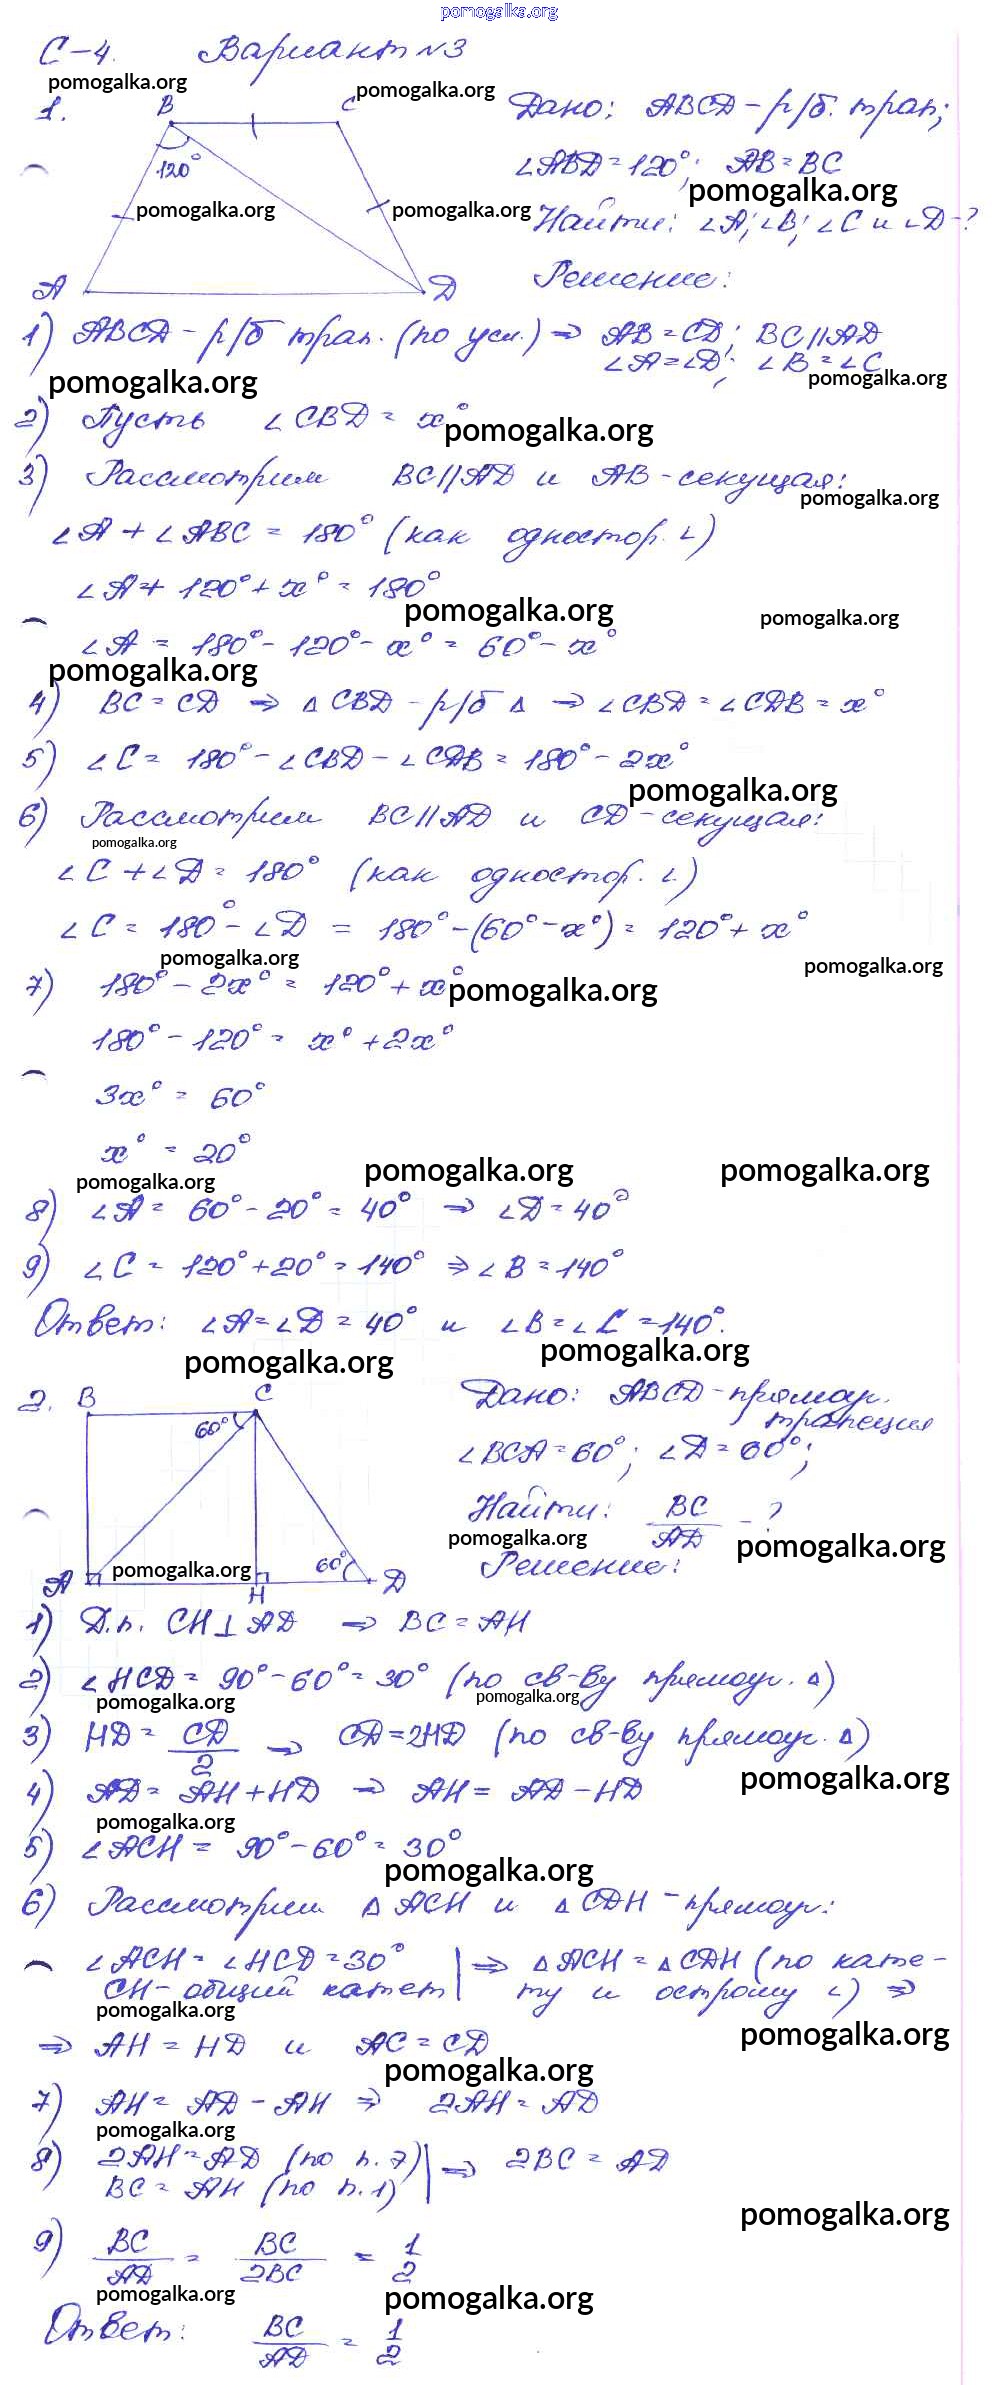 pomogalka.org
С-4. Вариант №3
pomogalka.org
pomogalka.org
1.
B
C
120°
A
D
pomogalka.org
pomogalka.org
Дано: ABCD - р/б. трап;
∠ABD = 120°; AB = BC
pomogalka.org
Найти: ∠A; ∠B; ∠C и ∠D - ?
Решение:
1) ABCD - р/б трап. (по усл.) ⇒ AB = CD; BC || AD
∠A = ∠D; ∠B = ∠C
pomogalka.org
pomogalka.org
2) Пусть ∠CBD = x°
pomogalka.org
3) Рассмотрим BC || AD и AB - секущая:
pomogalka.org
∠A + ∠ABC = 180° (как одностор. ∠)
∠A + 120° + x° = 180°
pomogalka.org
pomogalka.org
∠A = 180° - 120° - x° = 60° - x°
pomogalka.org
4) BC = CD ⇒ △ CBD - р/б △ ⇒ ∠CBD = ∠CDB = x°
5) ∠C = 180° - ∠CBD - ∠CDB = 180° - 2x°
pomogalka.org
6) Рассмотрим BC || AD и CD - секущая:
pomogalka.org
∠C + ∠D = 180° (как одностор. ∠)
∠C = 180° - ∠D = 180° - (60° - x°) = 120° + x°
pomogalka.org
pomogalka.org
7) 180° - 2x° = 120° + x°
pomogalka.org
180° - 120° = x° + 2x°
3x° = 60°
x° = 20°
pomogalka.org
pomogalka.org
pomogalka.org
8) ∠A = 60° - 20° = 40° ⇒ ∠D = 40°
9) ∠C = 120° + 20° = 140° ⇒ ∠B = 140°
Ответ: ∠A = ∠D = 40° и ∠B = ∠C = 140°.
pomogalka.org
pomogalka.org
2.
B
C
60°
60°
A
H
D
pomogalka.org
Дано: ABCD - прямоуг.
трапеция
∠BCA = 60°; ∠D = 60°;
Найти: BC/AD - ?
pomogalka.org
pomogalka.org
Решение:
1) Д.п. CH ⊥ AD ⇒ BC = AH
2) ∠HCD = 90° - 60° = 30° (по св-ву прямоуг. △)
pomogalka.org
pomogalka.org
3) HD = CD/2 ⇒ CD = 2HD (по св-ву прямоуг. △)
pomogalka.org
4) AD = AH + HD ⇒ AH = AD - HD
pomogalka.org
5) ∠ACH = 90° - 60° = 30°
pomogalka.org
6) Рассмотрим △ ACH и △ CDH - прямоуг:
∠ACH = ∠HCD = 30° | ⇒ △ ACH = △ CDH (по кате-
CH - общий катет | ту и острому ∠) ⇒
pomogalka.org
pomogalka.org
⇒ AH = HD и AC = CD
pomogalka.org
7) AH = AD - AH ⇒ 2AH = AD
pomogalka.org
8) 2AH = AD (по п. 7) | ⇒ 2BC = AD
BC = AH (по п. 1) |
pomogalka.org
9) BC/AD = BC/2BC = 1/2
pomogalka.org
pomogalka.org
Ответ: BC/AD = 1/2